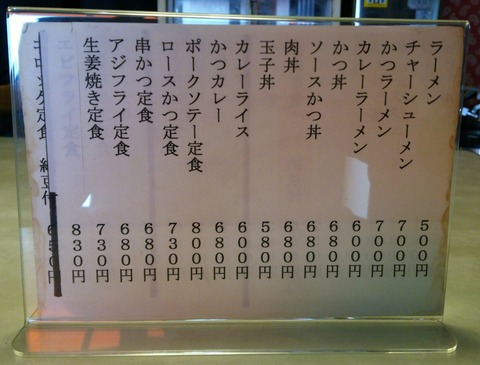 ラーメン 500円
チャーシューメン 700円
かつラーメン 700円
カレーラーメン 600円
かつ丼 680円
ソースかつ丼 680円
肉丼 680円
玉子丼 580円
カレーライス 600円
かつカレー 680円
ポークソテー定食 800円
ロースかつ定食 730円
串かつ定食 680円
アジフライ定食 680円
生姜焼き定食 730円
定食 830円
定食 納豆付 650円